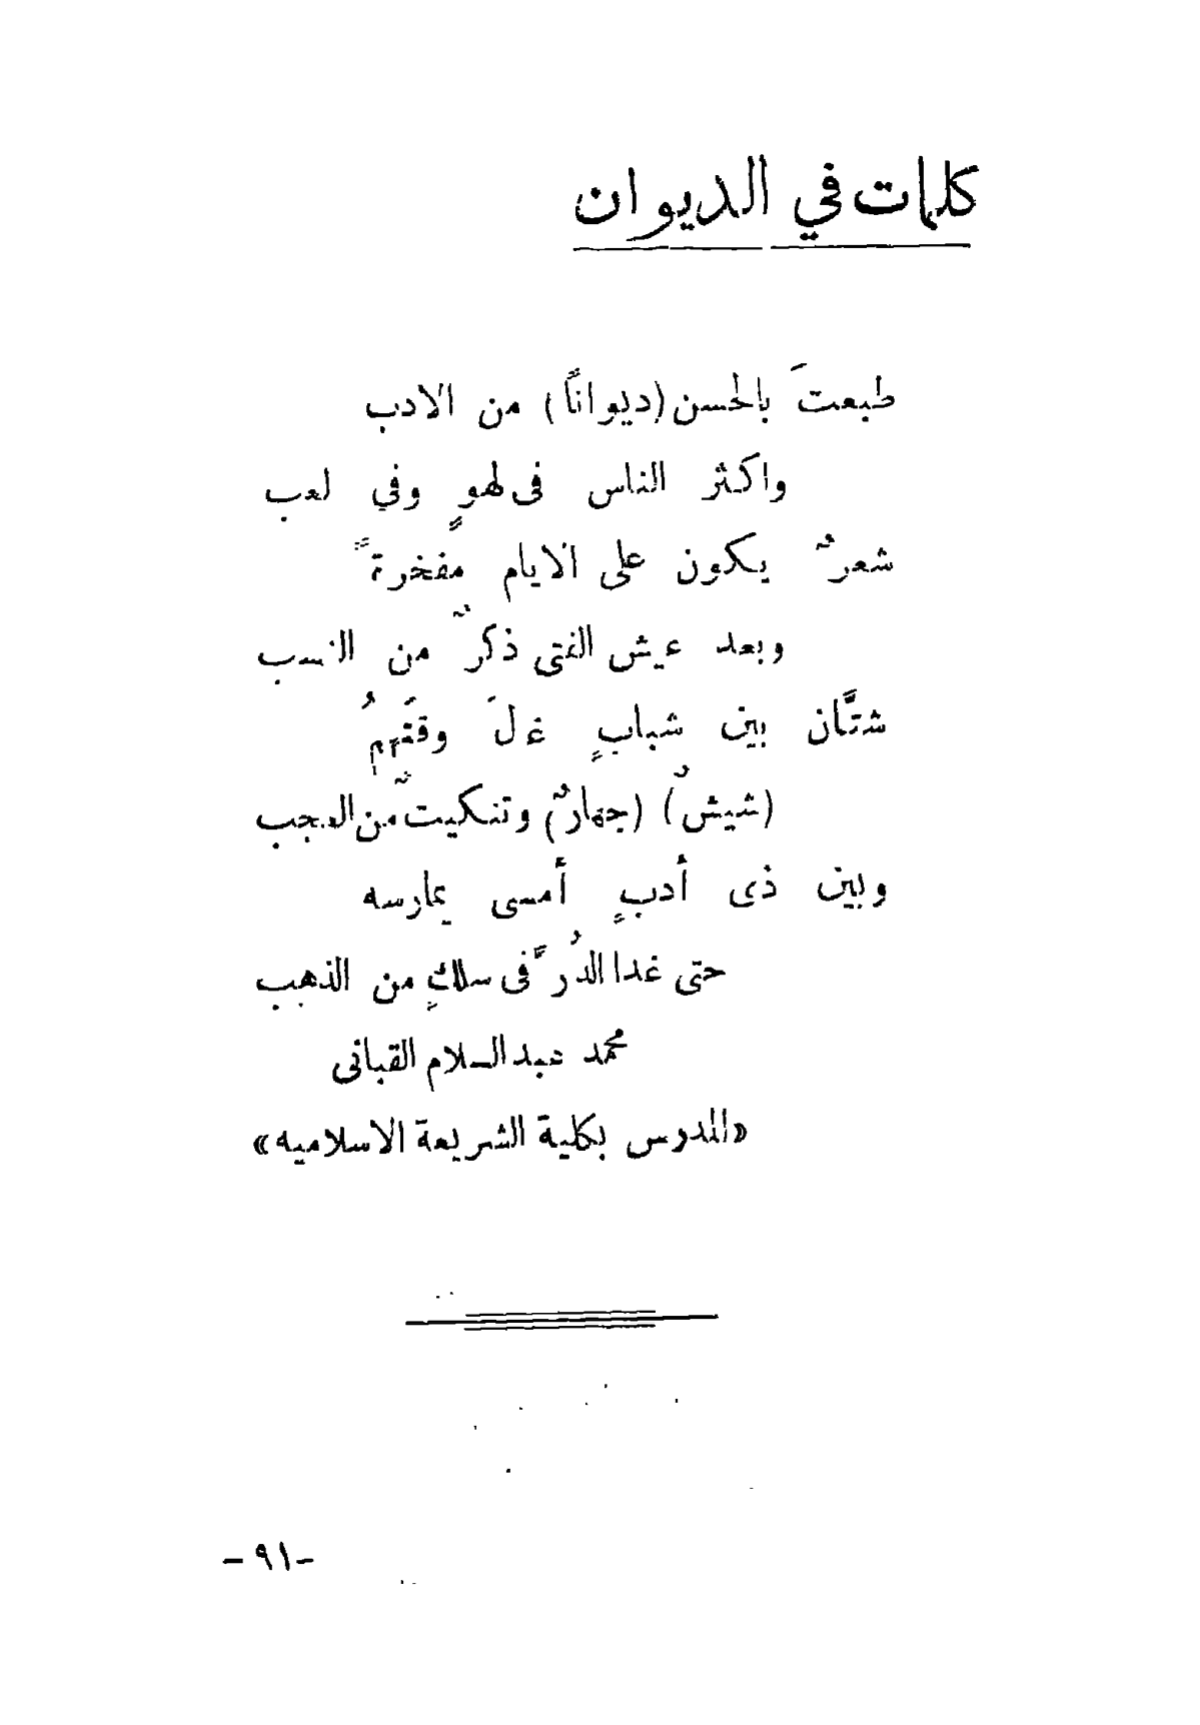 كلمات في الديوان
طبعتَ بالحسن (ديواناً) من الادب
واكثر الناس فى لهوٍ وفي لعب
شعرٌ يكون على الايام مفخرةً
وبعد عيش الفتى ذكرٌ من النسب
شتَّان بين شبابٍ غلَ وقتَهمُ
(شيشٌ) (جهارٌ) وتنكيتٌ من العجب
وبين ذى أدبٍ أمسى يمارسه
حتى غدا الدُرَّ فى سلكٍ من الذهب
محمد عبد السلام القبانى
«المدرس بكلية الشريعة الاسلاميه»
- ٩١ -